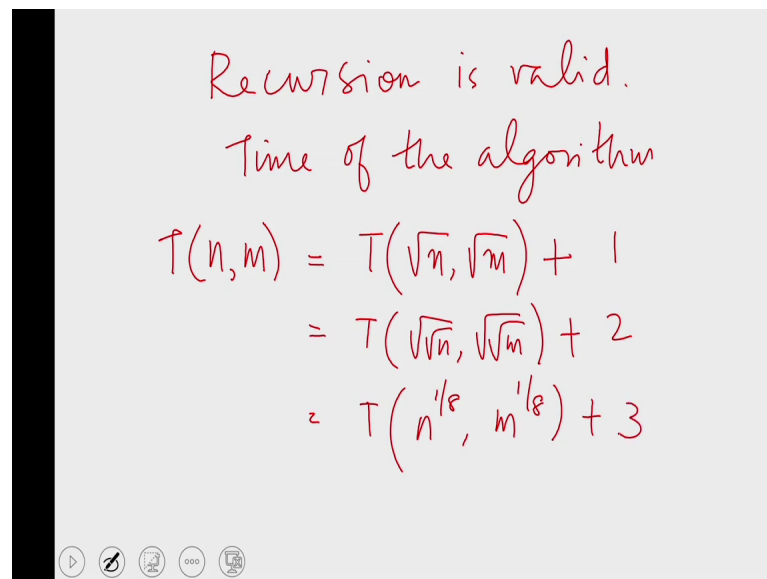 Recursion is valid.
Time of the algorithm
T(n,m) = T(√n, √m) + 1
= T(√√n, √√m) + 2
= T(n^{1/8}, m^{1/8}) + 3